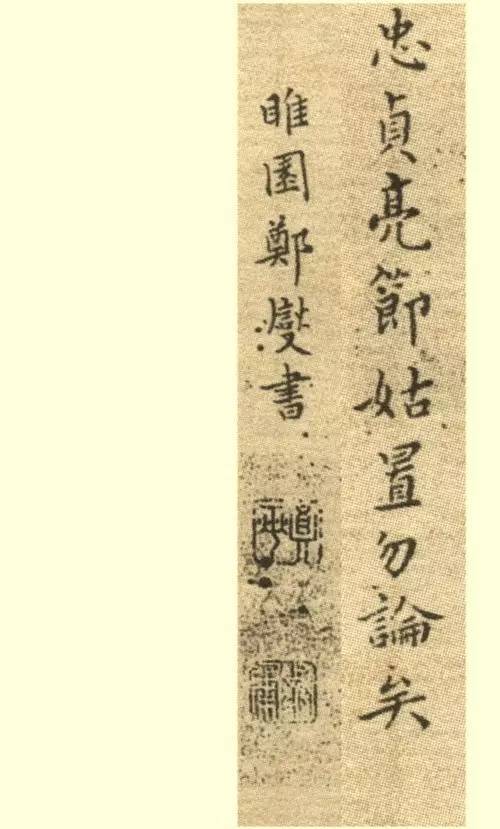 忠貞亮節姑置勿論矣
睢園鄭燮書